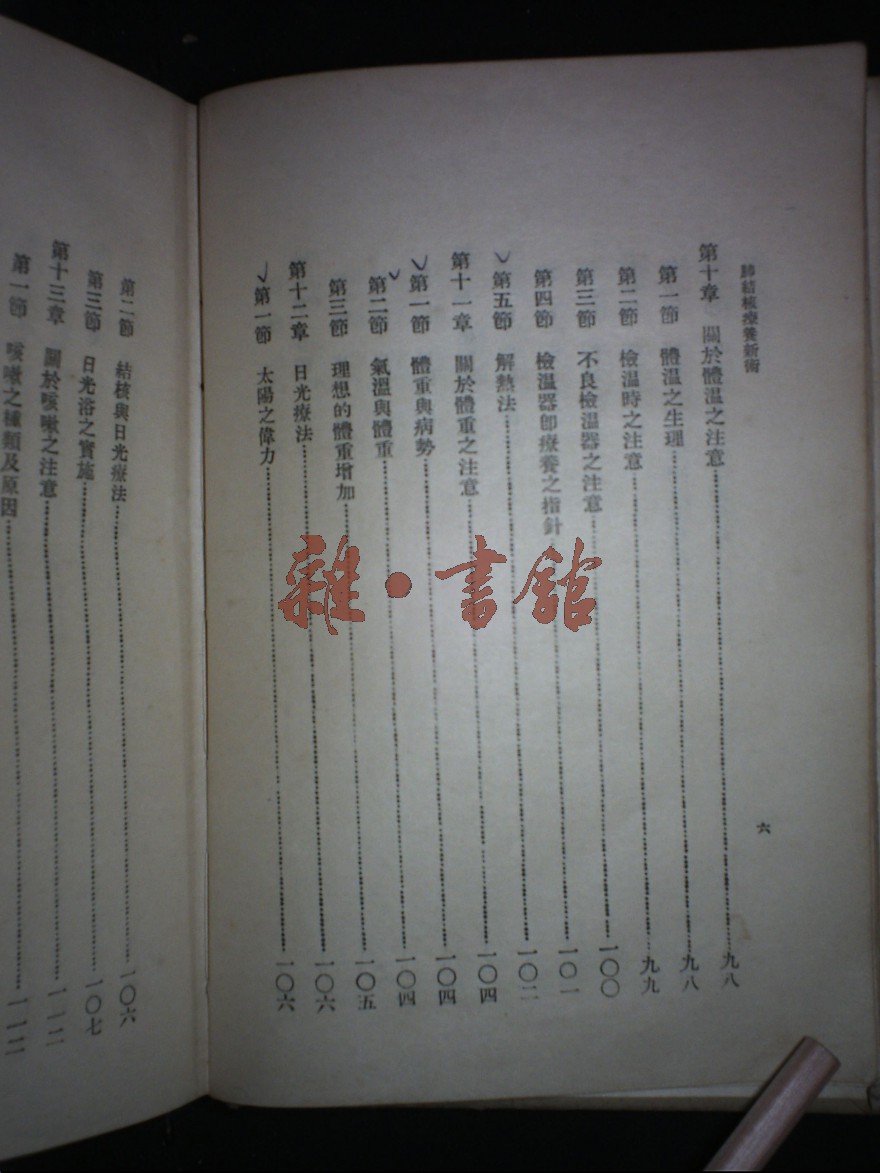 肺結核療養新術
六
第十章 關於體溫之注意 九八
第一節 體溫之生理 九八
第二節 檢溫時之注意 九九
第三節 不良檢溫器之注意 一〇〇
第四節 檢溫器卽療養之指針 一〇一
第五節 解熱法 一〇二
第十一章 關於體重之注意 一〇四
第一節 體重與病勢 一〇四
第二節 氣溫與體重 一〇四
第三節 理想的體重增加 一〇五
第十二章 日光療法 一〇六
第一節 太陽之偉力 一〇六
第二節 結核與日光療法 一〇六
第三節 日光浴之實施 一〇七
第十三章 關於咳嗽之注意 一一二
第一節 咳嗽之種類及原因 一一二
雜·書館